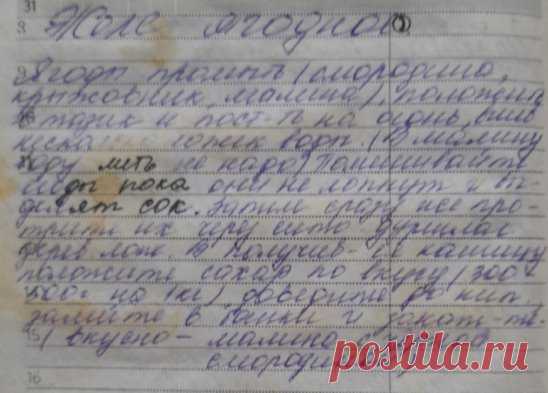 31
8 Желе ягодное (2)
9 Ягоды промыть (смородина,
крыжовник, малина), положить
в тазик и пост-ть на огонь, влив
неско ложек воды. (В малину
воду лить не надо) Помешивайте
ягоды пока они не лопнут и вы-
делят сок. Затем сразу же про-
трите их через сито
дерев лож. В получив-ся кашицу
положите сахар по вкусу (300-
500г на 1кг), доведите до кип.
залейте в банки и закат-те.
15 (вкусно - малина
смородина
16
postila.ru